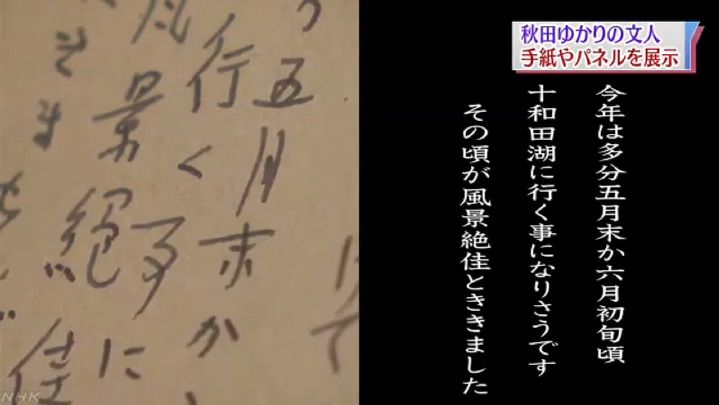 秋田ゆかりの文人
手紙やパネルを展示
今年は多分五月末か六月初旬頃
十和田湖に行く事になりさうです
その頃が風景絶佳とききました
五月末か
行く事に
景絶佳
NHK